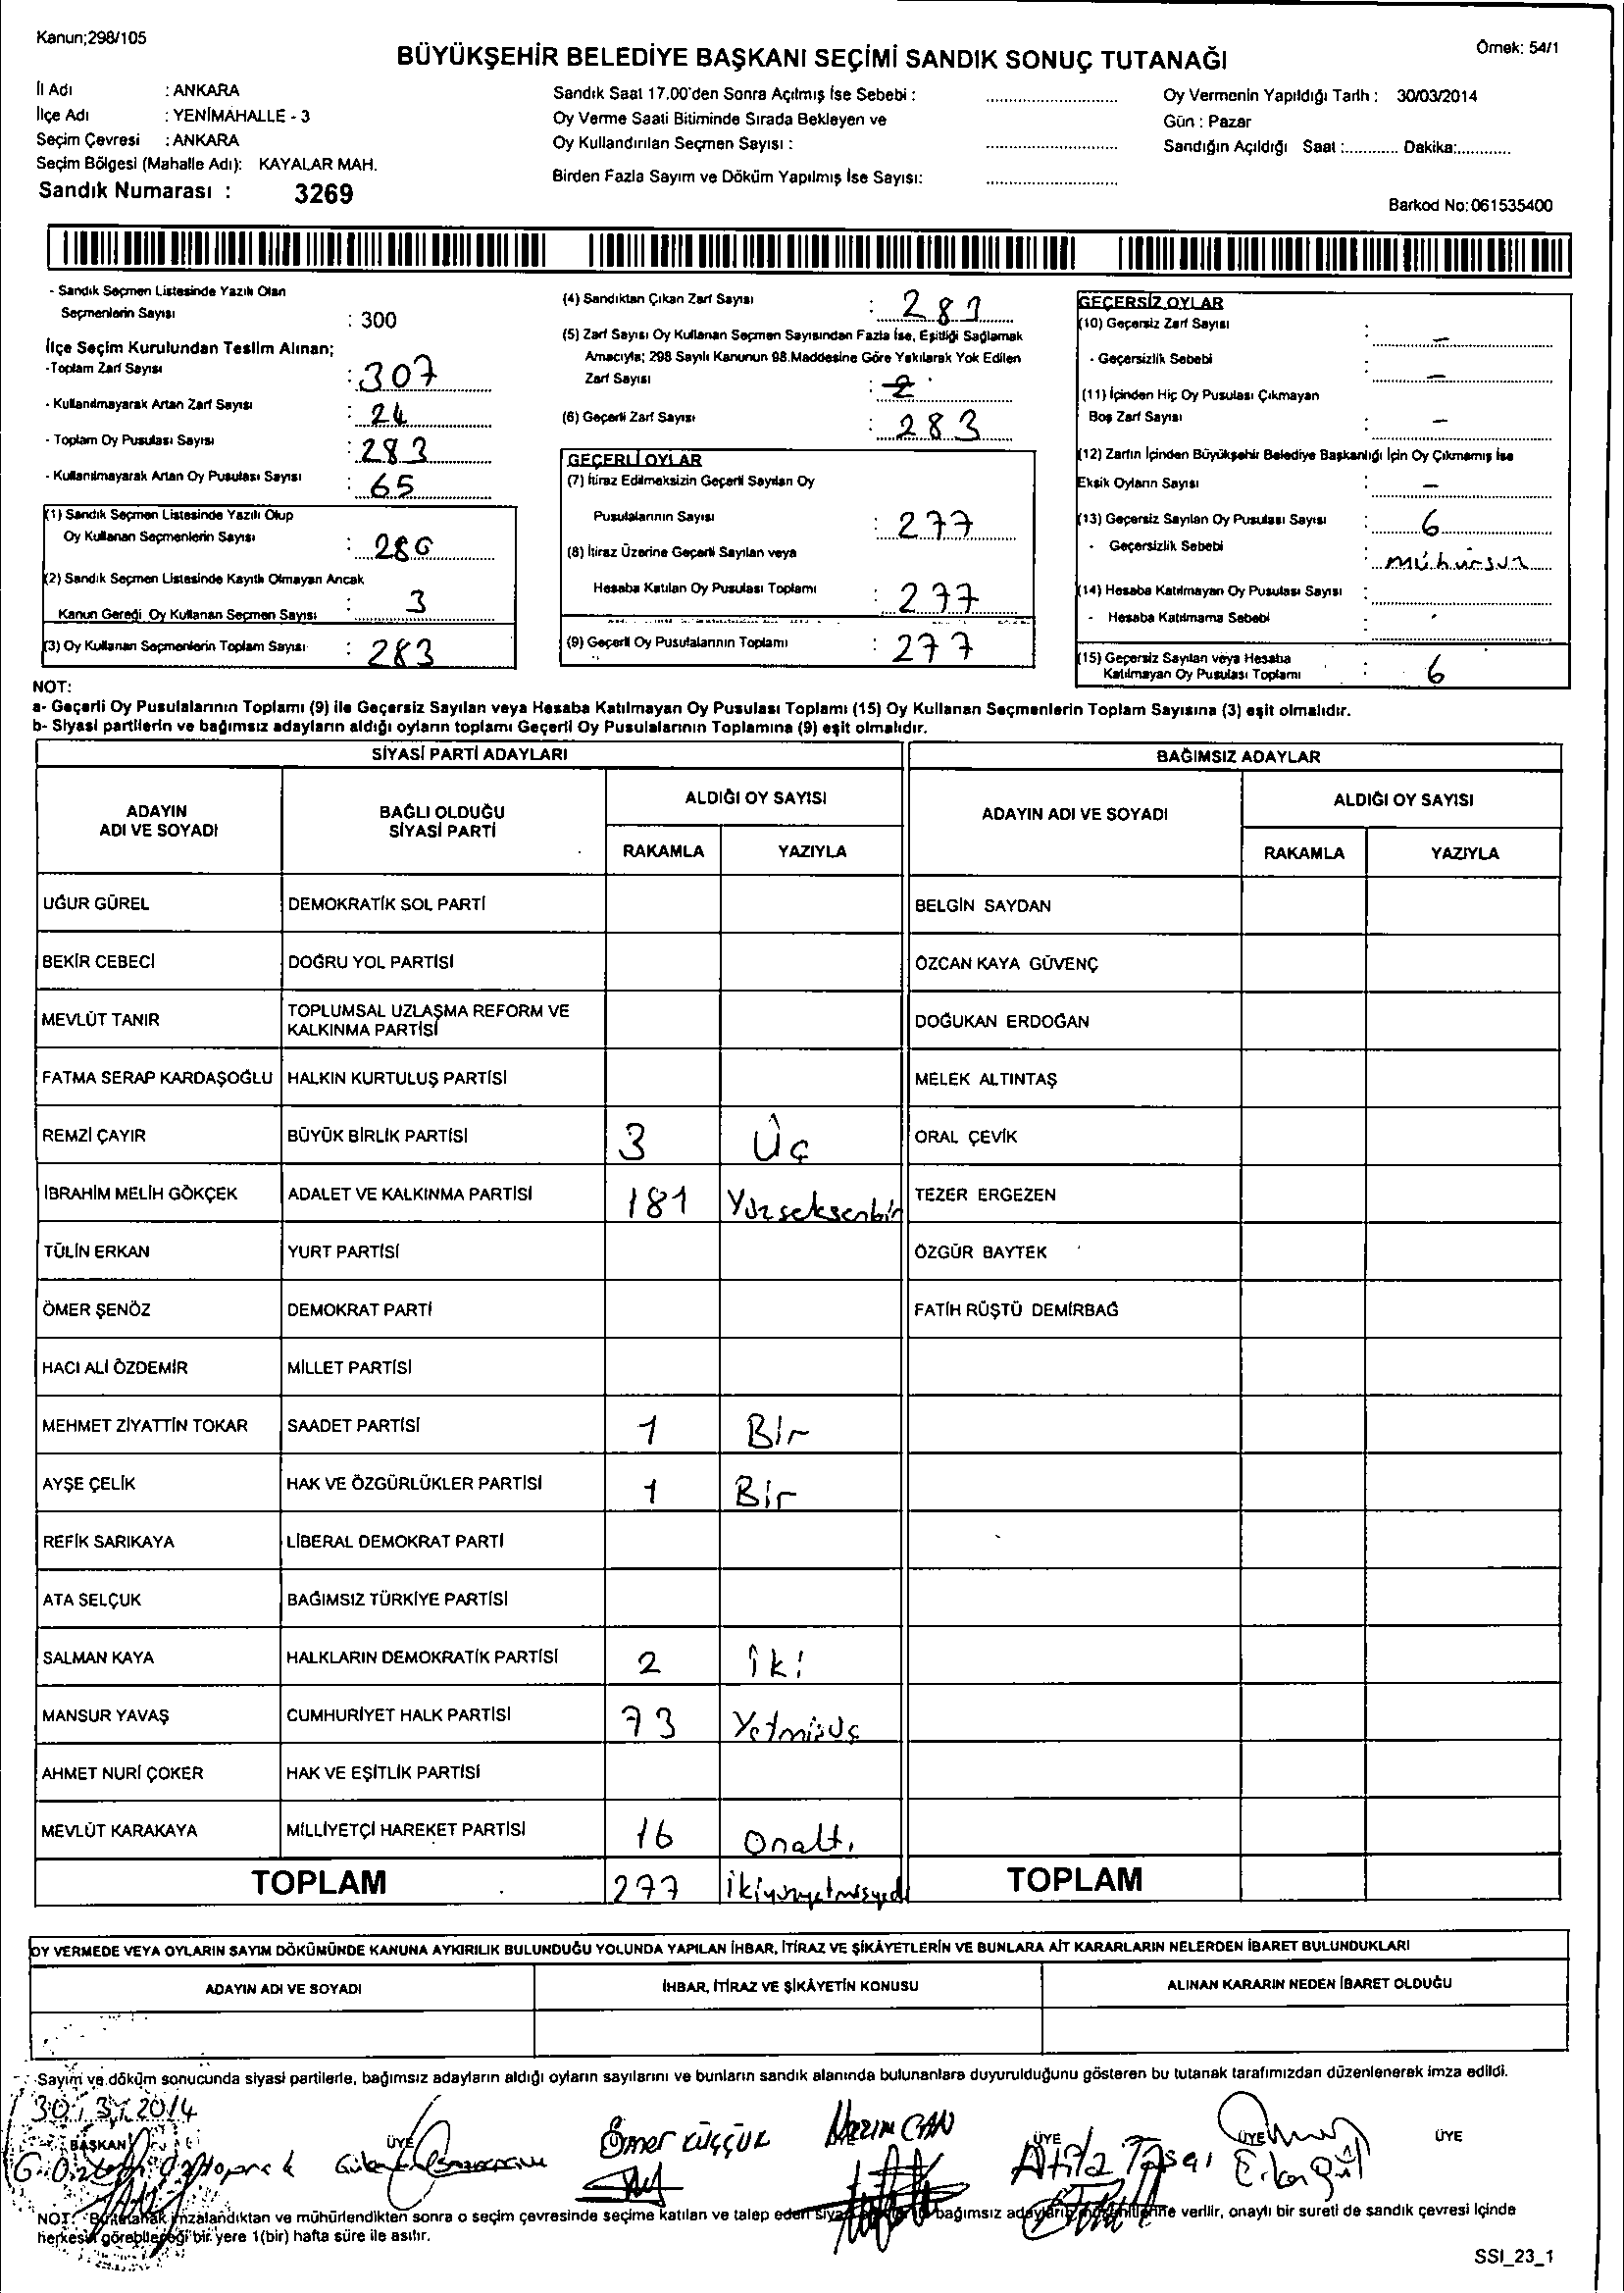 Kanun;298/105
Örnek: 54/1
BÜYÜKŞEHİR BELEDİYE BAŞKANI SEÇİMİ SANDIK SONUÇ TUTANAĞI
İl Adı : ANKARA
İlçe Adı : YENİMAHALLE - 3
Seçim Çevresi : ANKARA
Seçim Bölgesi (Mahalle Adı): KAYALAR MAH.
Sandık Numarası : 3269
Sandık Saat 17.00'den Sonra Açılmış İse Sebebi :
Oy Verme Saati Bitiminde Sırada Bekleyen ve
Oy Kullandırılan Seçmen Sayısı :
Birden Fazla Sayım ve Döküm Yapılmış İse Sayısı:
Oy Vermenin Yapıldığı Tarih : 30/03/2014
Gün : Pazar
Sandığın Açıldığı Saat :............ Dakika:............
Barkod No:061535400
- Sandık Seçmen Listesinde Yazılı Olan
Seçmenlerin Sayısı : 300
İlçe Seçim Kurulundan Teslim Alınan;
-Toplam Zarf Sayısı : 307
- Kullanılmayarak Artan Zarf Sayısı : 24
- Toplam Oy Pusulası Sayısı : 283
- Kullanılmayarak Artan Oy Pusulası Sayısı : 65
(1) Sandık Seçmen Listesinde Yazılı Olup
Oy Kullanan Seçmenlerin Sayısı : 280
(2) Sandık Seçmen Listesinde Kayıtlı Olmayan Ancak
Kanun Gereği Oy Kullanan Seçmen Sayısı : 3
(3) Oy Kullanan Seçmenlerin Toplam Sayısı : 283
(4) Sandıktan Çıkan Zarf Sayısı :
(5) Zarf Sayısı Oy Kullanan Seçmen Sayısından Fazla İse, Eşitliği Sağlamak
Amacıyla; 298 Sayılı Kanunun 98.Maddesine Göre Yakılarak Yok Edilen
Zarf Sayısı :
(6) Geçerli Zarf Sayısı : 283
GEÇERLİ OYLAR
(7) İtiraz Edilmeksizin Geçerli Sayılan Oy
Pusulalarının Sayısı : 277
(8) İtiraz Üzerine Geçerli Sayılan veya
Hesaba Katılan Oy Pusulası Toplamı : 277
(9) Geçerli Oy Pusulalarının Toplamı : 277
GEÇERSİZ OYLAR
(10) Geçersiz Zarf Sayısı : -
- Geçersizlik Sebebi : -
(11) İçinden Hiç Oy Pusulası Çıkmayan
Boş Zarf Sayısı : -
(12) Zarfın İçinden Büyükşehir Belediye Başkanlığı İçin Oy Çıkmamış İse
Eksik Oyların Sayısı : -
(13) Geçersiz Sayılan Oy Pusulası Sayısı : 6
- Geçersizlik Sebebi : mühürsüz
(14) Hesaba Katılmayan Oy Pusulası Sayısı :
- Hesaba Katılmama Sebebi :
(15) Geçersiz Sayılan veya Hesaba
Katılmayan Oy Pusulası Toplamı : 6
NOT:
a- Geçerli Oy Pusulalarının Toplamı (9) ile Geçersiz Sayılan veya Hesaba Katılmayan Oy Pusulası Toplamı (15) Oy Kullanan Seçmenlerin Toplam Sayısına (3) eşit olmalıdır.
b- Siyasi partilerin ve bağımsız adayların aldığı oyların toplamı Geçerli Oy Pusulalarının Toplamına (9) eşit olmalıdır.
SİYASİ PARTİ ADAYLARI BAĞIMSIZ ADAYLAR
ADAYIN ADI VE SOYADI BAĞLI OLDUĞU SİYASİ PARTİ ALDIĞI OY SAYISI ADAYIN ADI VE SOYADI ALDIĞI OY SAYISI
RAKAMLA YAZIYLA RAKAMLA YAZIYLA
UĞUR GÜREL DEMOKRATİK SOL PARTİ BELGİN SAYDAN
BEKİR CEBECİ DOĞRU YOL PARTİSİ ÖZCAN KAYA GÜVENÇ
MEVLÜT TANIR TOPLUMSAL UZLAŞMA REFORM VE KALKINMA PARTİSİ DOĞUKAN ERDOĞAN
FATMA SERAP KARDAŞOĞLU HALKIN KURTULUŞ PARTİSİ MELEK ALTINTAŞ
REMZİ ÇAYIR BÜYÜK BİRLİK PARTİSİ 3 Üç ORAL ÇEVİK
İBRAHİM MELİH GÖKÇEK ADALET VE KALKINMA PARTİSİ 181 Yüzseksenbir TEZER ERGEZEN
TÜLİN ERKAN YURT PARTİSİ ÖZGÜR BAYTEK
ÖMER ŞENÖZ DEMOKRAT PARTİ FATİH RÜŞTÜ DEMİRBAĞ
HACI ALİ ÖZDEMİR MİLLET PARTİSİ
MEHMET ZİYATTİN TOKAR SAADET PARTİSİ 1 Bir
AYŞE ÇELİK HAK VE ÖZGÜRLÜKLER PARTİSİ 1 Bir
REFİK SARIKAYA LİBERAL DEMOKRAT PARTİ
ATA SELÇUK BAĞIMSIZ TÜRKİYE PARTİSİ
SALMAN KAYA HALKLARIN DEMOKRATİK PARTİSİ 2 İki
MANSUR YAVAŞ CUMHURİYET HALK PARTİSİ 73 Yetmişüç
AHMET NURİ ÇOKER HAK VE EŞİTLİK PARTİSİ
MEVLÜT KARAKAYA MİLLİYETÇİ HAREKET PARTİSİ 16 Onaltı
TOPLAM 277 ikiyüzyetmişyedi TOPLAM
OY VERMEDE VEYA OYLARIN SAYIM DÖKÜMÜNDE KANUNA AYKIRILIK BULUNDUĞU YOLUNDA YAPILAN İHBAR, İTİRAZ VE ŞİKÂYETLERİN VE BUNLARA AİT KARARLARIN NELERDEN İBARET BULUNDUKLARI
ADAYIN ADI VE SOYADI İHBAR, İTİRAZ VE ŞİKÂYETİN KONUSU ALINAN KARARIN NEDEN İBARET OLDUĞU
Sayım ve döküm sonucunda siyasi partilerle, bağımsız adayların aldığı oyların sayılarını ve bunların sandık alanında bulunanlara duyurulduğunu gösteren bu tutanak tarafımızdan düzenlenerek imza edildi.
30/3/2014
BAŞKAN ÜYE Ömer KÜÇÇÜK Nazım CAN ÜYE Atila Taşçı ÜYE ÜYE
NOT: Bu tutanak imzalandıktan ve mühürlendikten sonra o seçim çevresinde seçime katılan ve talep eden siyasi bağımsız verilir, onaylı bir sureti de sandık çevresi içinde
herkesin görebileceği bir yere 1(bir) hafta süre ile asılır.
SSI_23_1